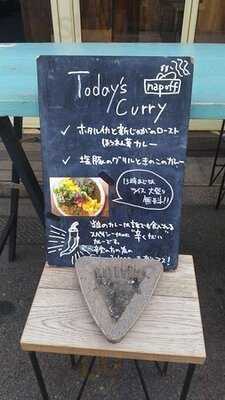 Today's
Curry
napoff
✓ ホタルイカと新じゃがのロースト
ほうれん草カレー
✓ 塩豚のグリルときのこカレー
13時までは
ライス大盛り
無料!!
当店のカレーは誰でも食べれる
スパイシーだけど"辛くない"
カレーです。